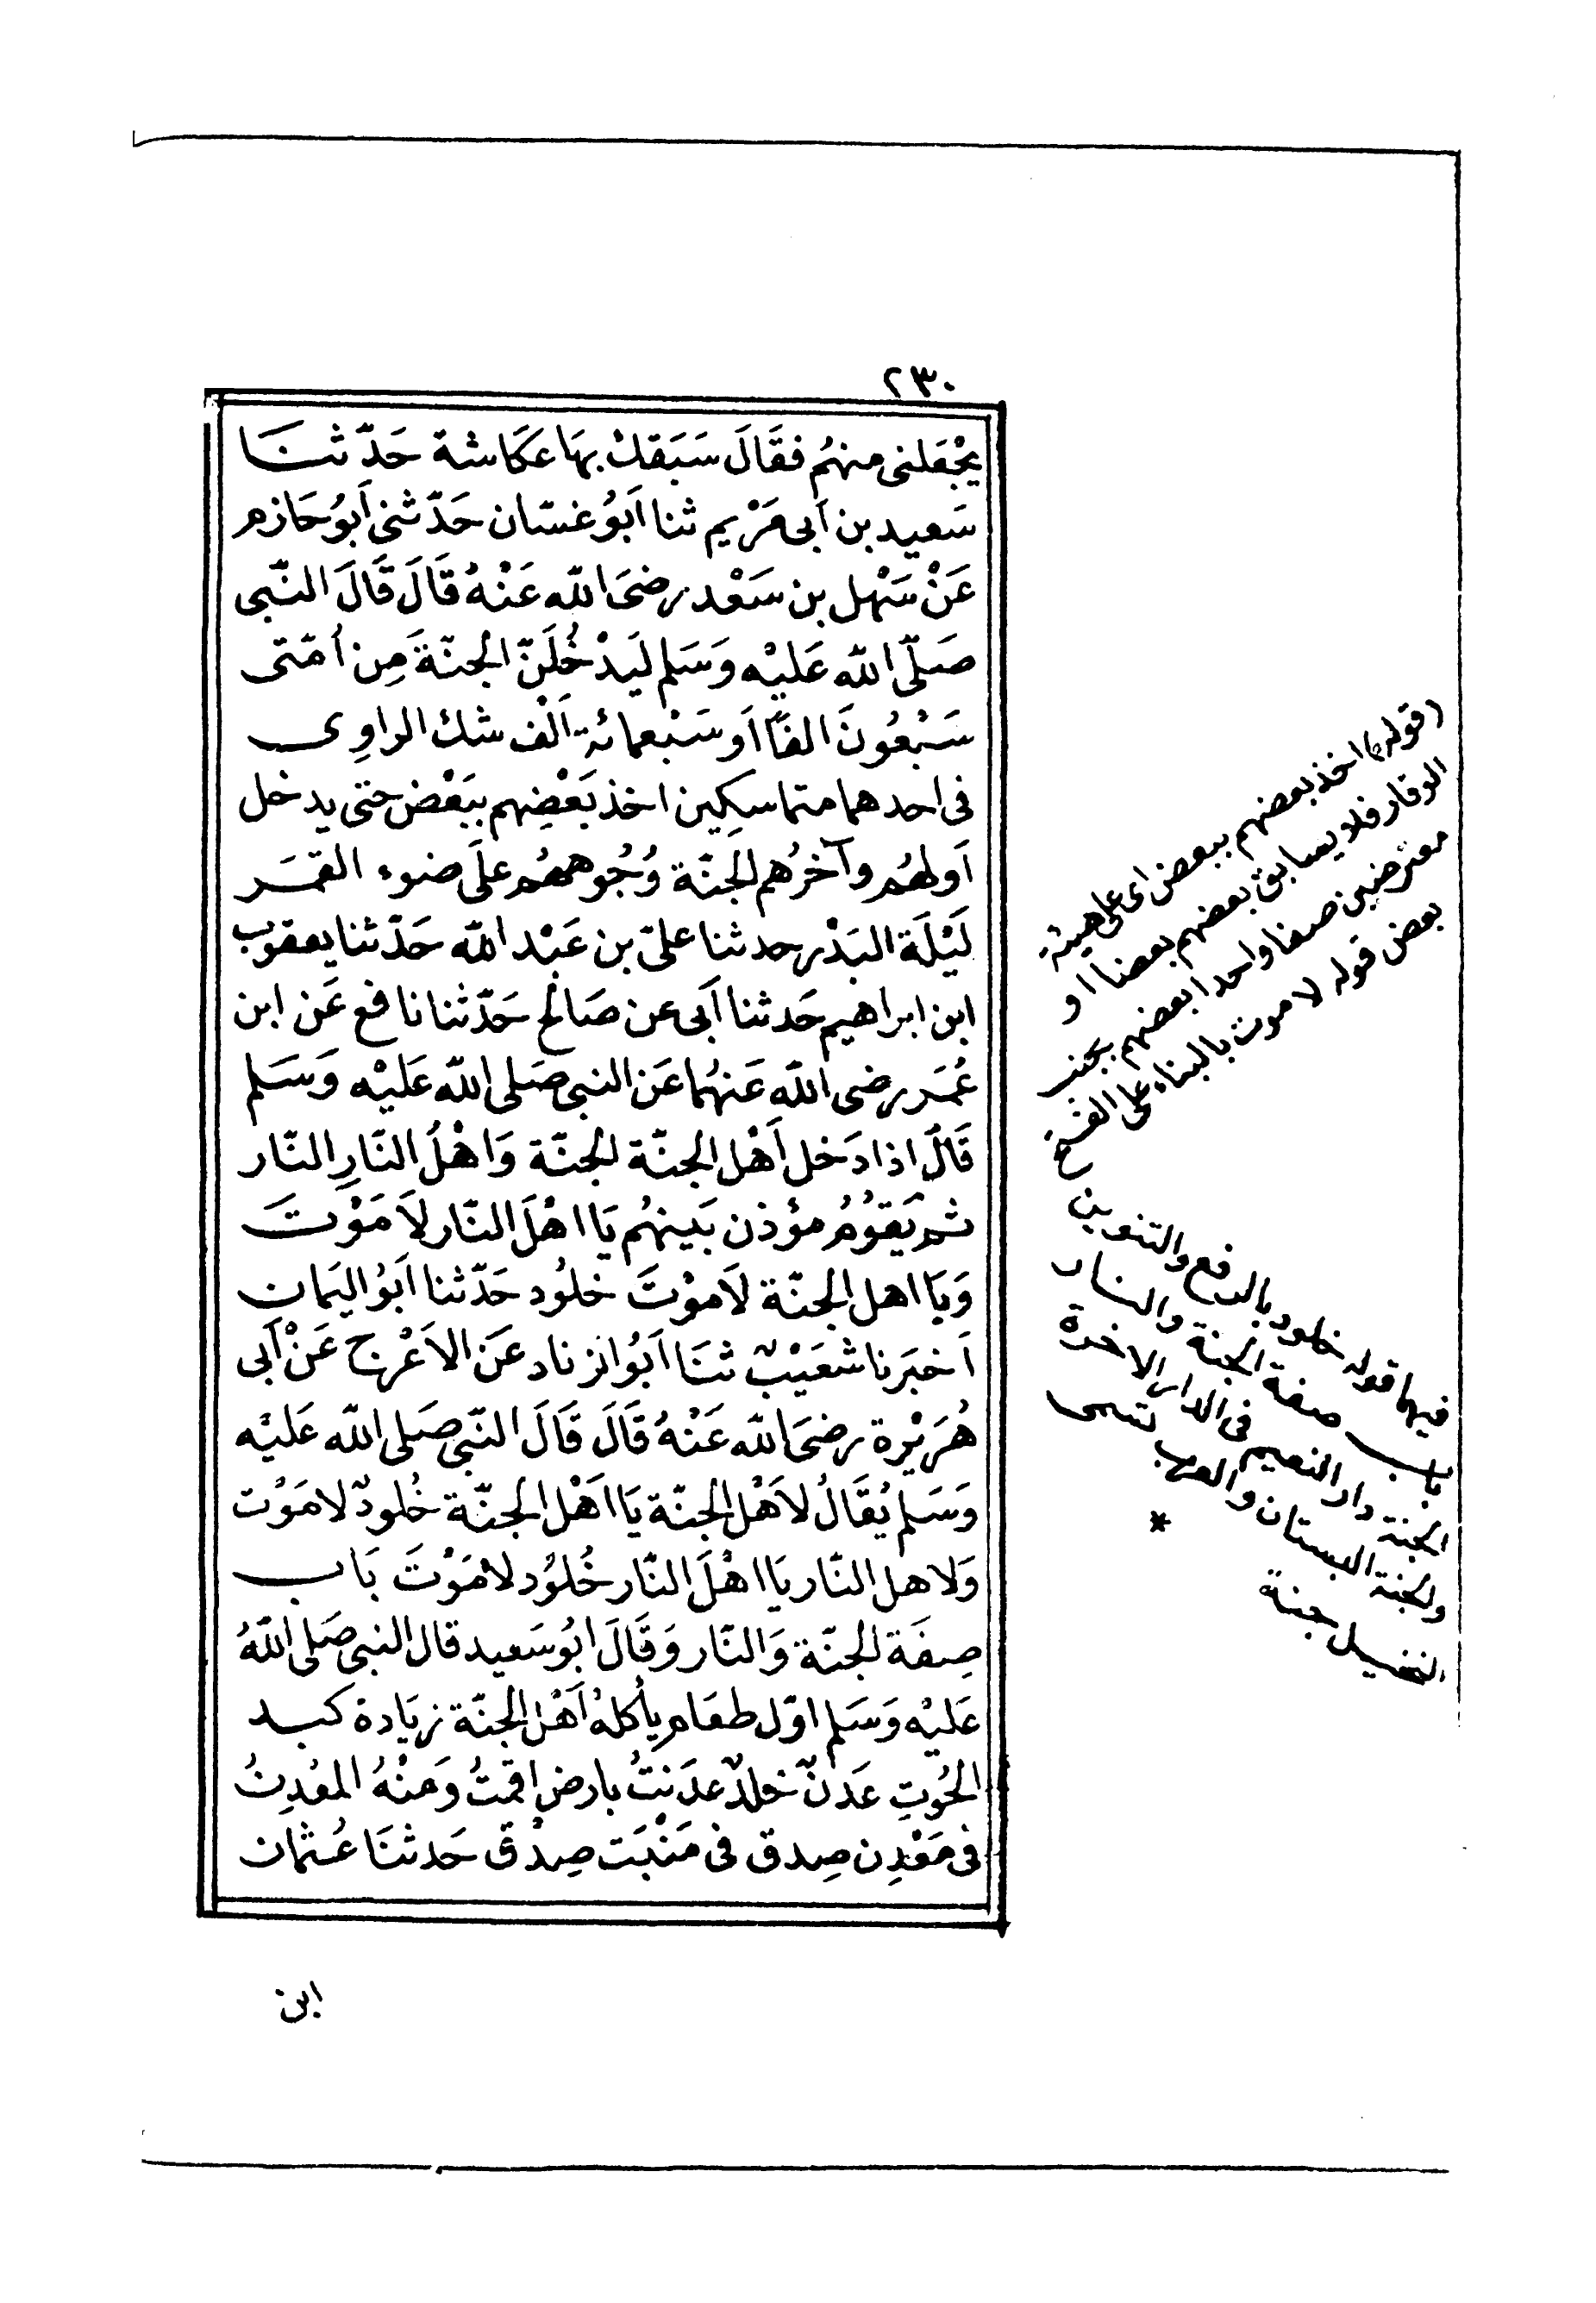 ٢٣٠
يَجْعَلنى منهُم فقَالَ سَبَقكْ بهَا عَكَاشة حَدّثنَا
سَعيد بن أبى مَرْيم ثنا اَبوُ غسّان حَدّثنى أبوُ حَازم
عَنْ سَهْل بن سَعْد رضىَ الله عَنْهُ قَالَ قَالَ النّبى
صَلّى الله عَليْه وَسَلم لَيَدْخُلَنّ الجنّةَ مِن اُمّتى
سَبْعُونَ الفًا اَو سَبْعمائة اَلْف شك الراوِى
فى احدهما متماسكِين اخذ بَعْضِهم ببَعْض حتى يدخل
اَولهُم وآخرُهم الجنّة وُجُوههُم علَى ضوء القمَر
لَيْلَة البَدْر حدثنا علىّ بن عَبْد الله حَدّثنا يعقوب
ابن ابراهيم حَدثنا اَبى عن صَالح حَدّثنا نافع عَن ابن
عُمَر رضى الله عَنهُما عَن النبى صَلى الله عَليْه وَسَلم
قَالَ اذا دَخل اَهْل الجنّة الجنّة وَاهْلُ النّارِ النّار
ثم يَقوُمُ مؤذن بَينهُم يَا اهْلَ النّار لاَ مَوْتَ
وَيَا اهل الجنّة لاَ موْتَ خلُود حَدّثنا اَبوُ اليَمانِ
اَخبَرنا شعَيْبٌ ثنَا اَبوُ الزناد عَن الاَعْرج عَنْ اَبى
هُرَيْرة رضىَ الله عَنْهُ قَالَ قَالَ النّبى صَلى الله عَليْه
وَسَلم يُقَالُ لاَهْل الجنّة يَا اَهْل الجنّة خُلودٌ لا مَوْت
وَلاهل النّار يَا اهْلَ النّار خُلوُد لا مَوْتَ بَاب
صِفَة الجنّة وَالنّار وَقَالَ ابوُ سَعيد قال النبى صَلى اللهُ
عَليْه وَسَلم اوّل طعَامٍ يأكلهُ اَهْل الجنّة زيَادة كبد
الحُوتِ عَدْنٌ خلدٌ عدَنتُ بارض اقمتُ وَمنْهُ المعْدِنُ
فى مَعْدِن صِدق فى مَنْبَت صِدْق حَدثنَا عُثمان
(قوله) اخذ بعضهم ببعض اى على هيئة
الوقار فلا يسابق بعضهم بعضا او
معترضين صفا واحدا بعضهم بجنب
بعض قوله لا موت بالبناء على الفتح
فيهما قوله خلود بالرفع والتنوين
باب صفة الجنة والنار
الجنة دار النعيم فى الدار الاخرة
والجنة البستان والعرب تسمى
النخيل جنة
*
ابن